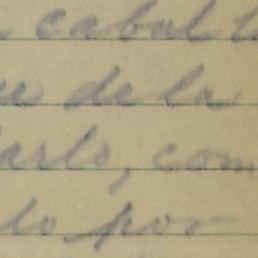 cabal
de la
arlo, com
lo por